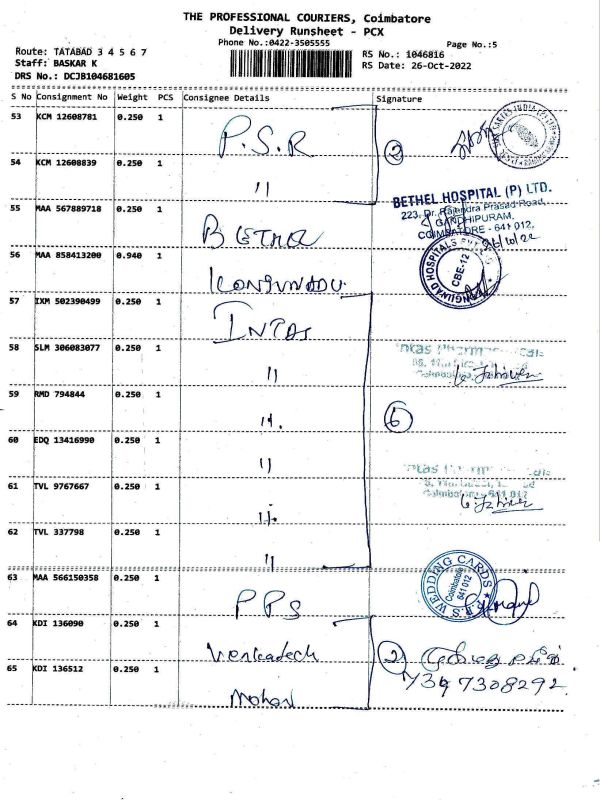 THE PROFESSIONAL COURIERS, Coimbatore
Delivery Runsheet - PCX
Phone No.:0422-3505555
Page No.:5
Route: TATABAD 3 4 5 6 7
Staff: BASKAR K
DRS No.: DCJB104681605
RS No.: 1046816
RS Date: 26-Oct-2022
S No Consignment No Weight PCS Consignee Details Signature
53 KCM 12608781 0.250 1 P.S.R
2
54 KCM 12608839 0.250 1 "
BETHEL HOSPITAL (P) LTD.
223, Dr. Rajendra Prasad Road,
GANDHIPURAM,
COIMBATORE - 641 012.
55 MAA 567889718 0.250 1 BETHEL
56 MAA 858413200 0.940 1 KONGUNADU
CBE-12
57 IXM 502390499 0.250 1 INTAS
58 SLM 306083077 0.250 1 "
59 RMD 794844 0.250 1 "
6
60 EDQ 13416990 0.250 1 "
61 TVL 9767667 0.250 1 "
62 TVL 337798 0.250 1 "
63 MAA 566150358 0.250 1 PPS
WEDDING CARDS
Coimbatore
641 012
64 KDI 136090 0.250 1 Venkatesh
2
65 KDI 136512 0.250 1 Mohan
7397308292